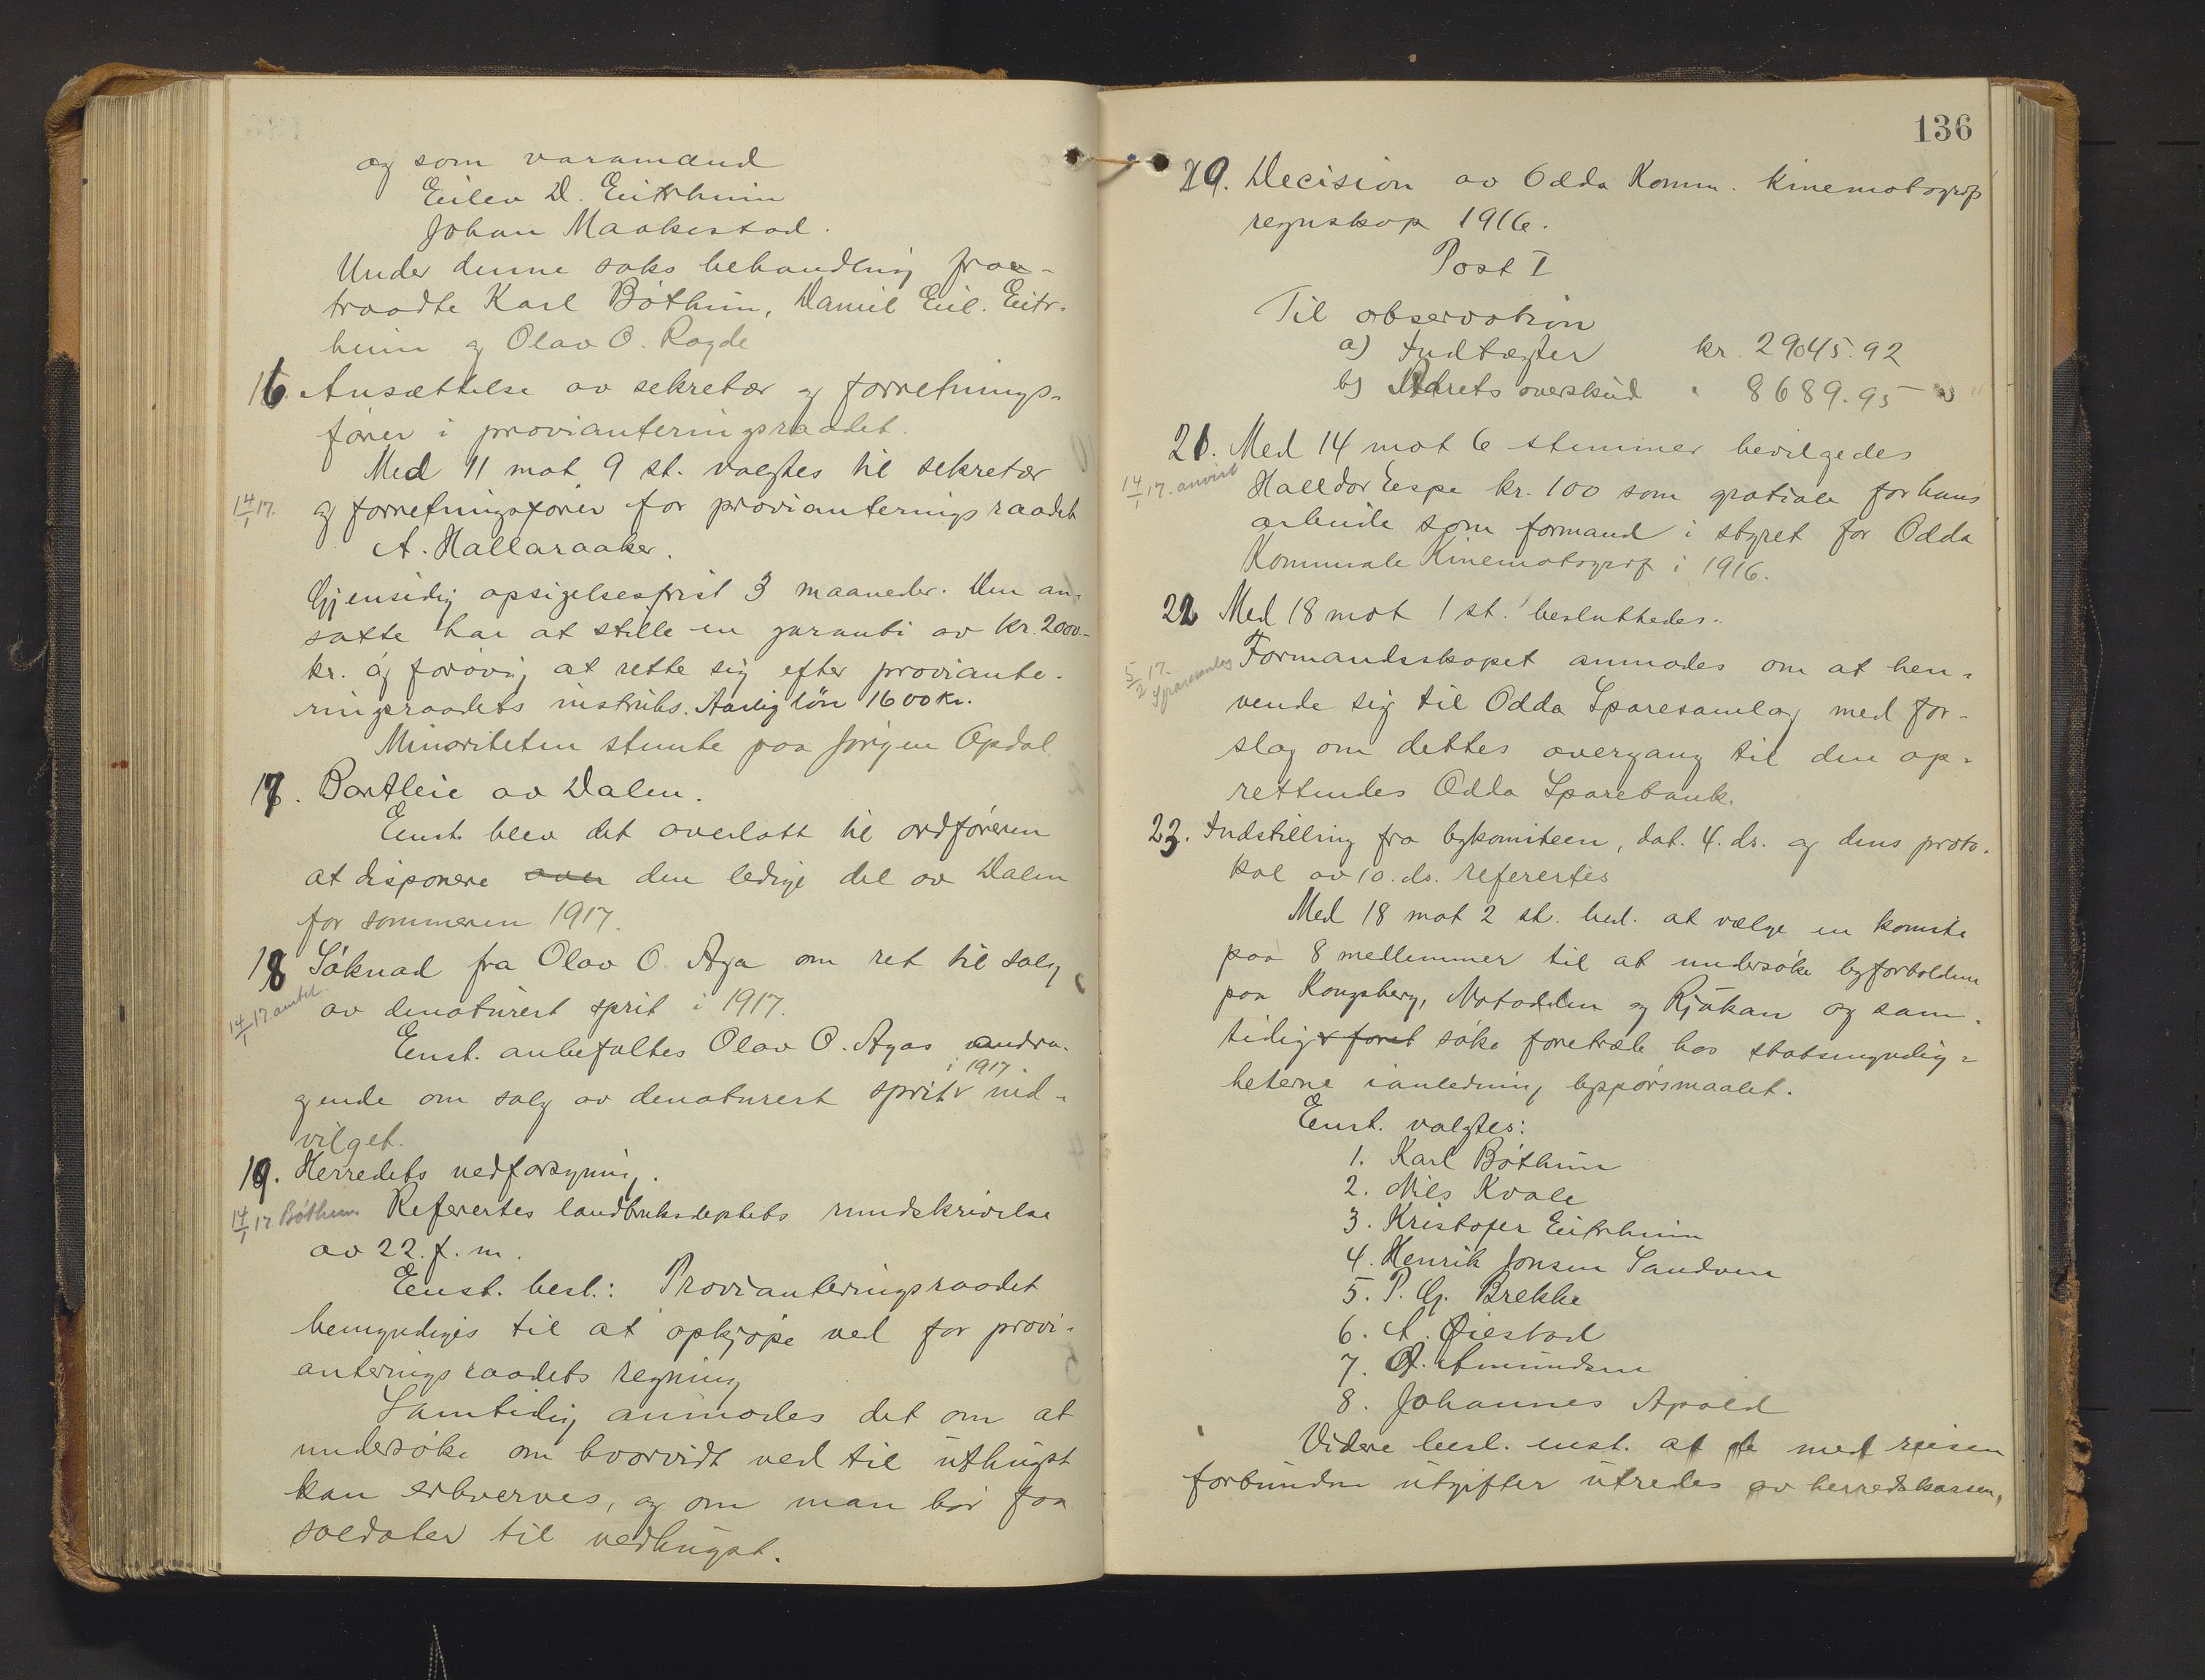 og som varamænd
Eilev D. Eitrheim
Johan Maakestad.
Under denne saks behandling fraa-
traadte Karl Bøthun, Daniel Eil. Eitr-
heim og Olav O. Ragde
16. Ansættelse av sekretær og forretnings-
fører i provianteringsraadet.
Med 11 mot 9 st. valgtes til sekretær
14/1 17.
og forretningsfører for provianteringsraadet
A. Hallaraaker.
Gjensidig opsigelsesfrist 3 maaneder. Den an-
satte har at stille en garanti av kr. 2000.-
kr. og forøvrig at rette sig efter proviante-
ringsraadets instruks. Aarlig løn 1600 kr.
Minoriteten stemte paa Jørgen Opdal.
17. Bortleie av Dalen.
Enst. blev det overlatt til ordføreren
at disponere over den ledige del av Dalen
for sommeren 1917.
18 Søknad fra Olav O. Aga om ret til salg
14/1 17. amtet
av denaturert sprit i 1917.
Enst. anbefaltes Olav O. Agas andra-
i 1917
gende om salg av denaturert sprit ind-
vilget.
19. Herredets vedforsyning.
14/1 17 Bøthun Referertes landbruksdeptets rundskrivelse
av 22. f. m.
Enst. besl.: Provianteringsraadet
bemyndiges til at opkjøpe ved for provi-
anteringsraadets regning
Samtidig anmodes det om at
undersøke om hvorvidt ved til uthugst
kan erhverves, og om man bør faa
soldater til vedhugst.
136
20. Decision av Odda Komm. Kinematograf
regnskap 1916.
Post I
Til observation
a) Indtægter kr. 29045.92
b) Aarets overskud " 8689.95
21. Med 14 mot 6 stemmer bevilgedes
14/1 17. anvist
Halldor Espe kr. 100 som gratiale for hans
arbeide som formand i styret for Odda
Kommunale Kinematograf i 1916.
22 Med 18 mot 1 st. besluttedes.
5/2 17. Sparesamlag
Formandsskapet anmodes om at hen-
vende sig til Odda Sparesamlag med for-
slag om dettes overgang til den op-
rettendes Odda Sparebank.
23. Indstilling fra bykomiteen, dat. 4. ds. og dens proto-
kol av 10. ds. refertes
Med 18 mot 2 st. besl. at vælge en komite
paa 8 medlemmer til at undersøke byforholdene
paa Kongsberg, Notodden og Rjukan og sam-
tidig foret søke foretræde hos statsmyndig-
heterne i anledning byspørsmaalet.
Enst. valgtes:
1. Karl Bøthun
2. Nils Kvale
3. Kristofer Eitrheim
4. Henrik Jonsen Sandven
5. P. G. Brekke
6. A. Øiestad
7. O. Amundsen
8. Johannes Apold
Videre besl. enst. at de med reisen
forbundne utgifter utredes av herredskassen,